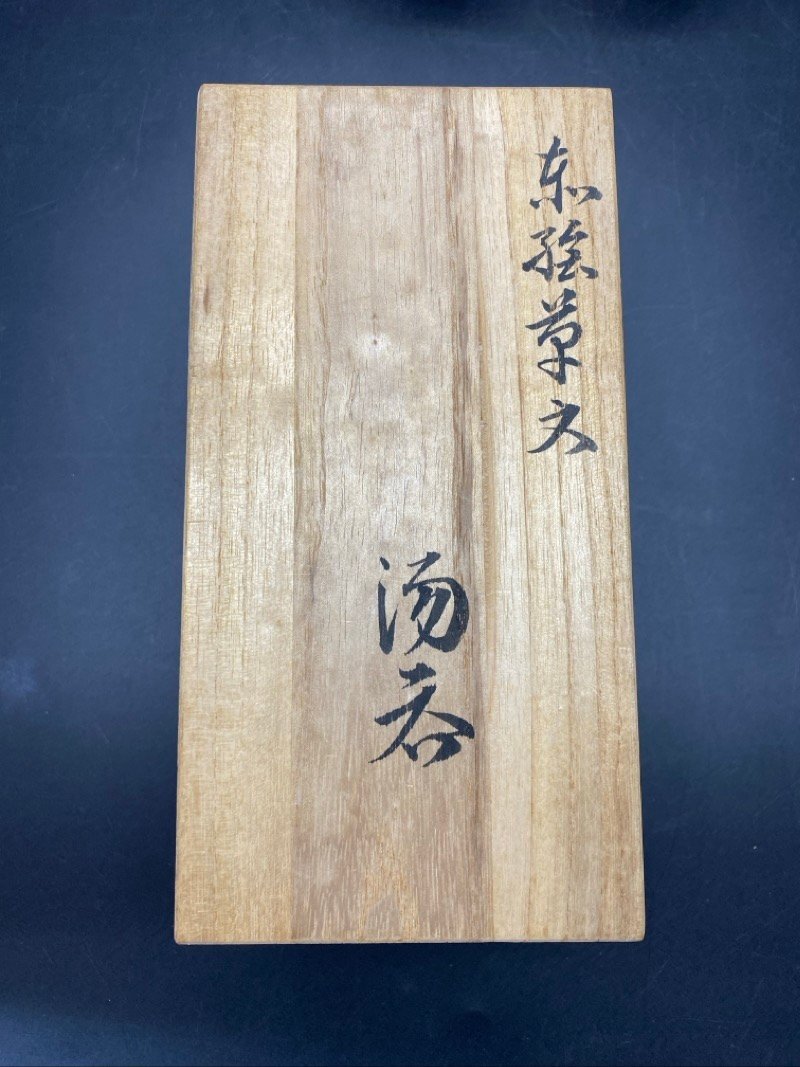 赤絵草文
湯呑